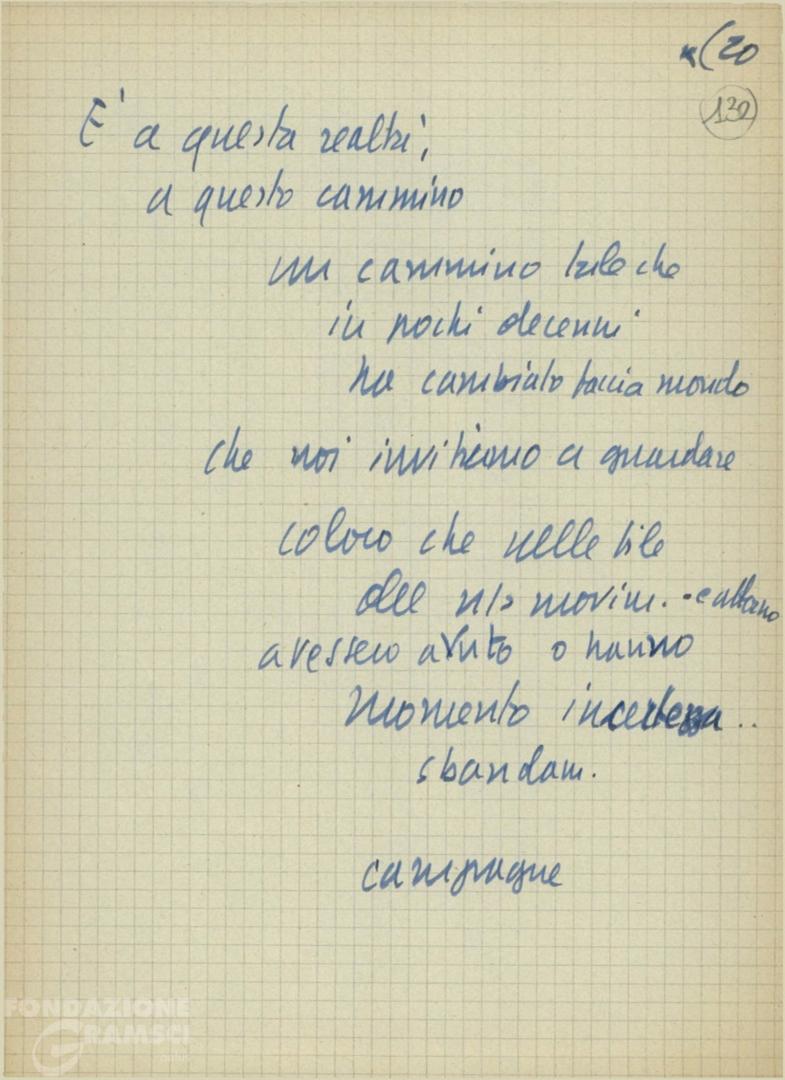 *(20
132
E' a questa realtà,
a questo cammino
un cammino tale che
in pochi decenni
ha cambiato faccia mondo
che noi invitiamo a guardare
coloro che nelle file
del n/s movim.
avessero avuto o hanno
momento incertezza..
sbandam.
campagne
FONDAZIONE
GRAMSCI